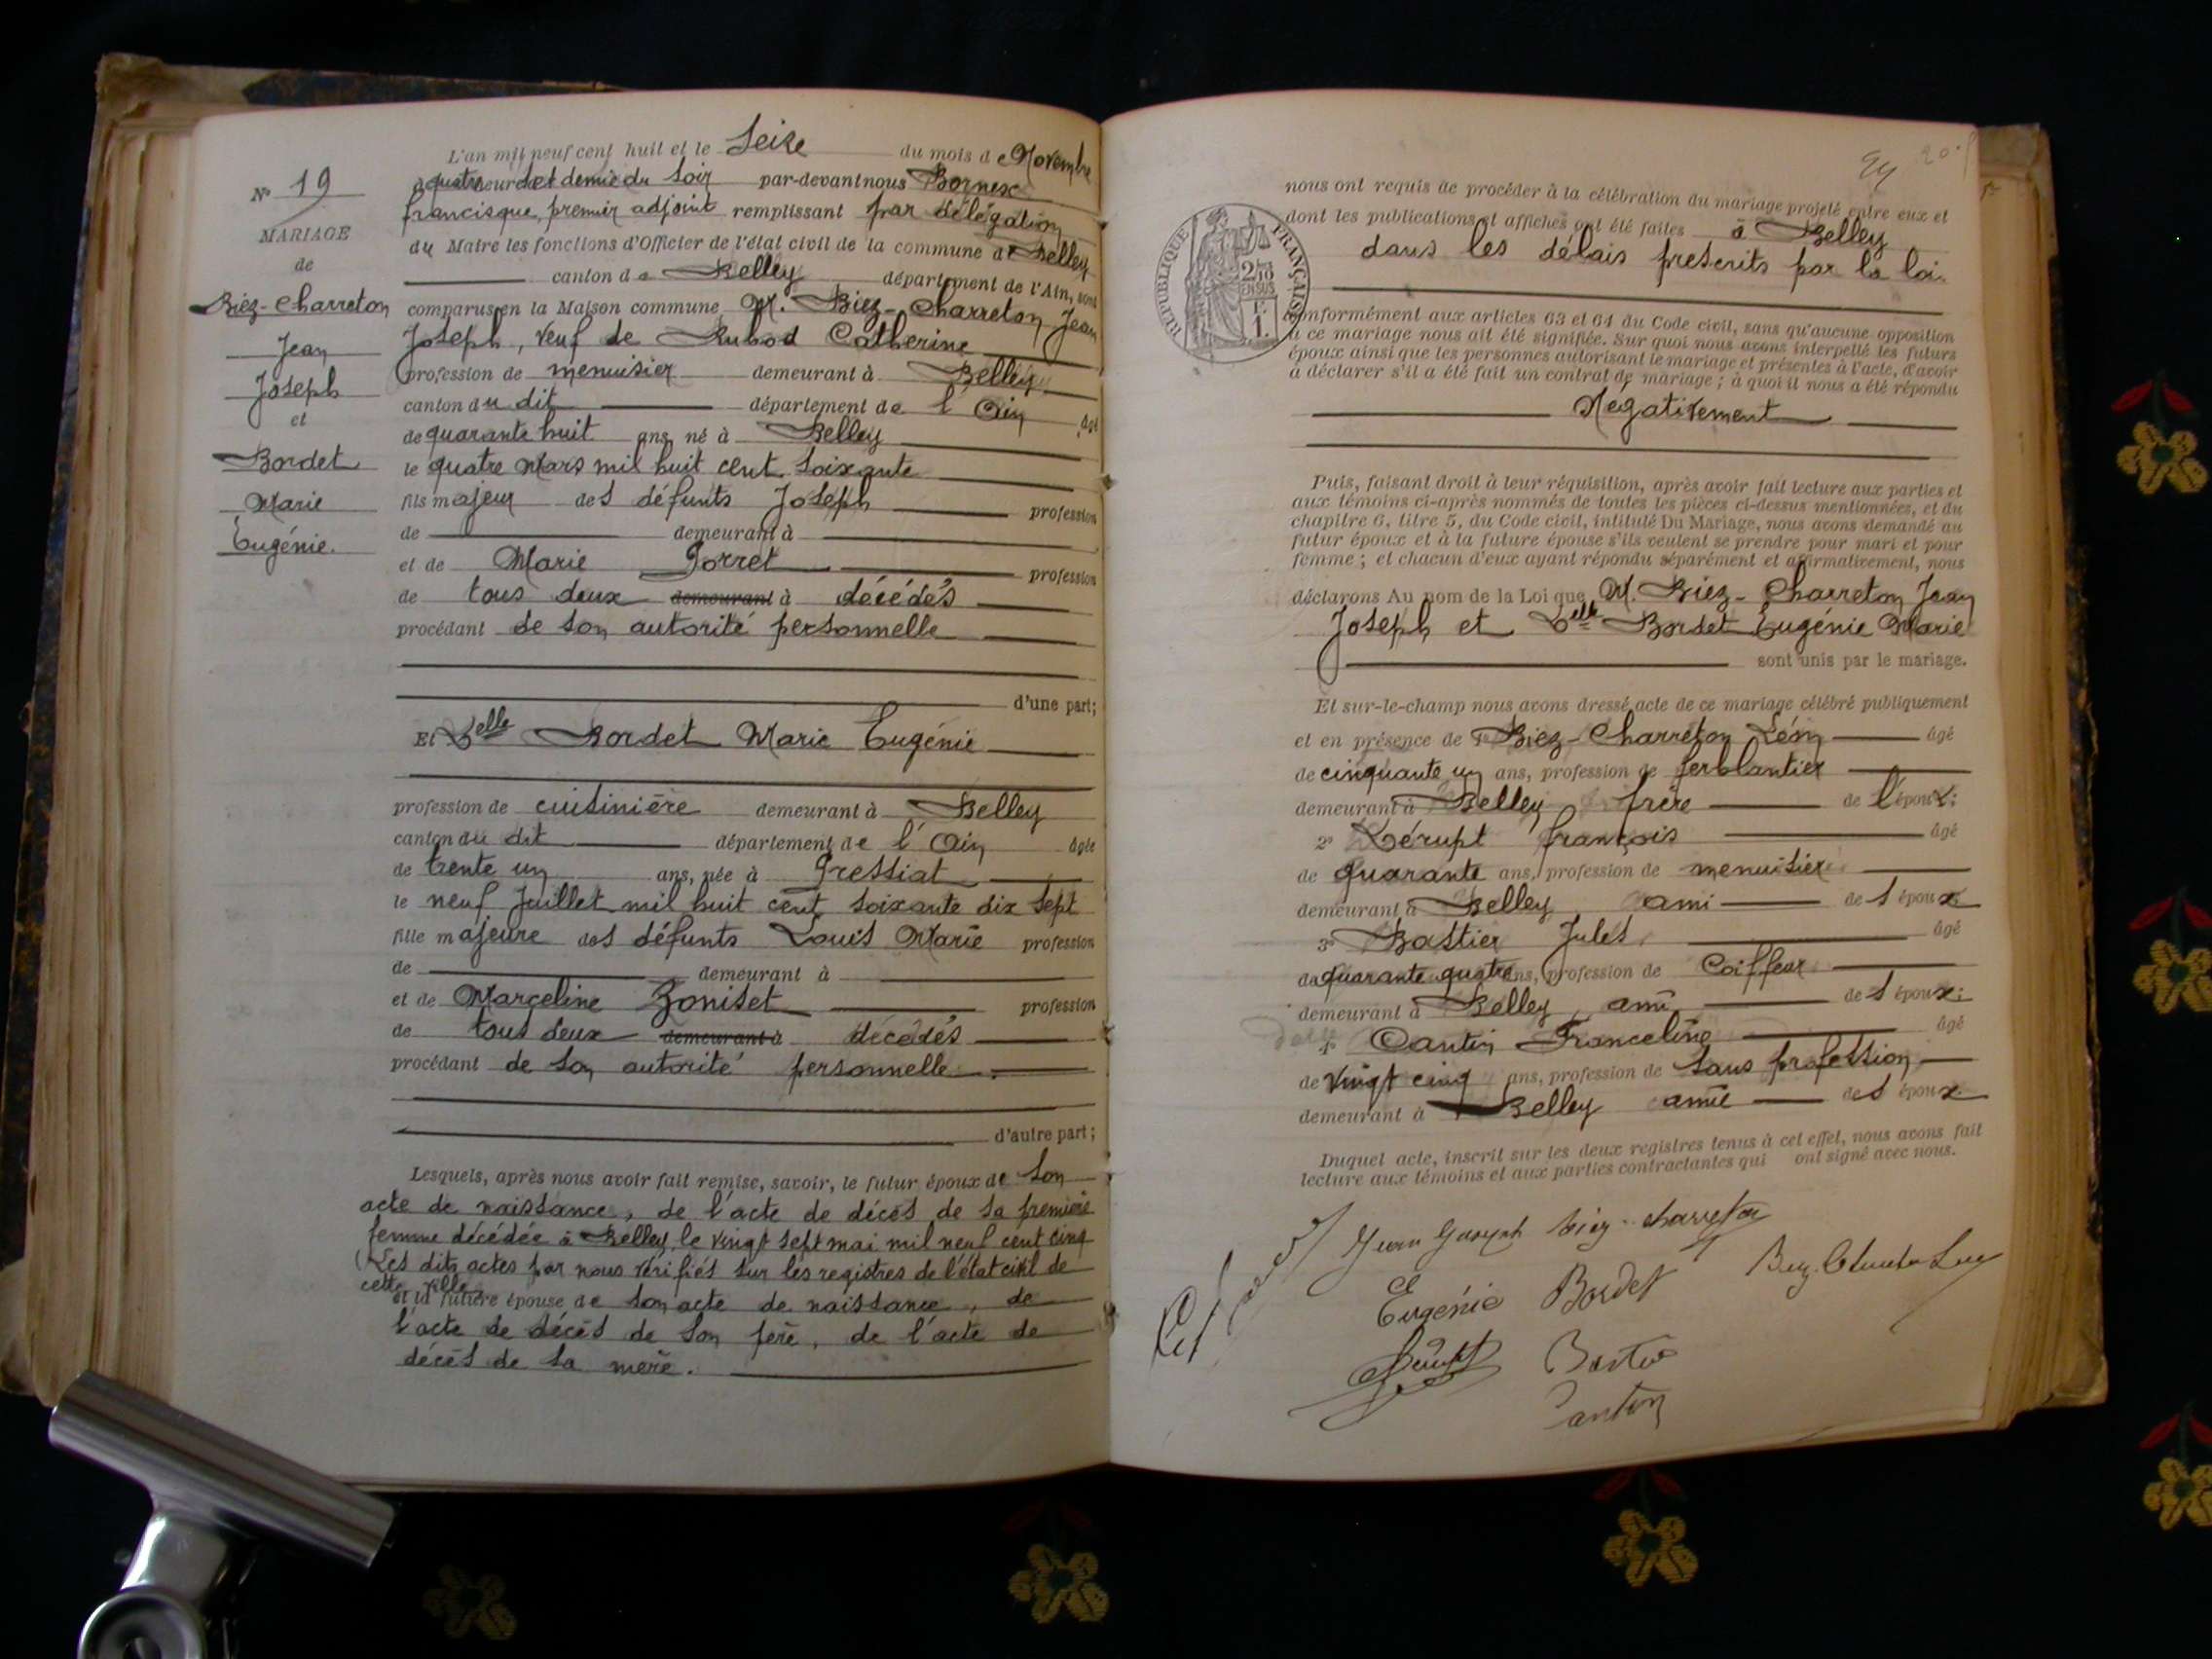 N° 19
MARIAGE
de
Biéz-Charreton
Jean
Joseph
et
Bordet
Marie
Eugénie.
L'an mil neuf cent huit et le Seize du mois de Novembre
à quatre heures et demie du soir par-devant nous Bornex
francisque, premier adjoint remplissant par délégation
du Maire les fonctions d'Officier de l'état civil de la commune de Belley
canton de Belley département de l'Ain, sont
comparus en la Maison commune M. Biez-Charreton Jean
Joseph, veuf de Rubod Catherine
profession de menuisier demeurant à Belley
canton du dit département de l'Ain âgé
de quarante huit ans, né à Belley
le quatre Mars mil huit cent soixante
fils majeur des défunts Joseph profession
de demeurant à
et de Marie Porret profession
de tous deux demeurant à décédés
procédant de son autorité personnelle
d'une part;
Et Delle Bordet Marie Eugénie
profession de cuisinière demeurant à Belley
canton du dit département de l'Ain âgée
de trente un ans, née à Pressiat
le neuf Juillet mil huit cent soixante dix sept
fille majeure des défunts Louis Marie profession
de demeurant à
et de Marceline Boniset profession
de tous deux demeurant à décédés
procédant de son autorité personnelle.
d'autre part;
Lesquels, après nous avoir fait remise, savoir, le futur époux de son
acte de naissance, de l'acte de décès de sa première
femme décédée à Belley le vingt sept mai mil neuf cent cinq
(Les dits actes par nous vérifiés sur les registres de l'état civil de
cette ville
et la future épouse de son acte de naissance, de
l'acte de décès de son père, de l'acte de
décès de sa mère.
RÉPUBLIQUE FRANÇAISE
2/10
EN SUS
1 F.
nous ont requis de procéder à la célébration du mariage projeté entre eux et
dont les publications et affiches ont été faites à Belley
dans les délais prescrits par la loi.
conformément aux articles 63 et 64 du Code civil, sans qu'aucune opposition
à ce mariage nous ait été signifiée. Sur quoi nous avons interpellé les futurs
époux ainsi que les personnes autorisant le mariage et présentes à l'acte, d'avoir
à déclarer s'il a été fait un contrat de mariage; à quoi il nous a été répondu
Négativement
Puis, faisant droit à leur réquisition, après avoir fait lecture aux parties et
aux témoins ci-après nommés de toutes les pièces ci-dessus mentionnées, et du
chapitre 6, titre 5, du Code civil, intitulé Du Mariage, nous avons demandé au
futur époux et à la future épouse s'ils veulent se prendre pour mari et pour
femme; et chacun d'eux ayant répondu séparément et affirmativement, nous
déclarons Au nom de la Loi que M. Biéz-Charreton Jean
Joseph et Delle Bordet Eugénie Marie
sont unis par le mariage.
Et sur-le-champ nous avons dressé acte de ce mariage célébré publiquement
et en présence de 1° Biez-Charreton Léon âgé
de cinquante un ans, profession de ferblantier
demeurant à Belley frère de l'époux;
2° Dérupt françois âgé
de quarante ans, profession de menuisier
demeurant à Belley ami des époux
3° Bastier Jules âgé
de quarante quatre ans, profession de Coiffeur
demeurant à Belley, ami des époux;
4° Cantin Franceline âgé
de vingt cinq ans, profession de sans profession
demeurant à Belley amie des époux
Duquel acte, inscrit sur les deux registres tenus à cet effet, nous avons fait
lecture aux témoins et aux parties contractantes qui ont signé avec nous.
Jean Joseph biez-charreton
Eugénie Bordet
Cantin